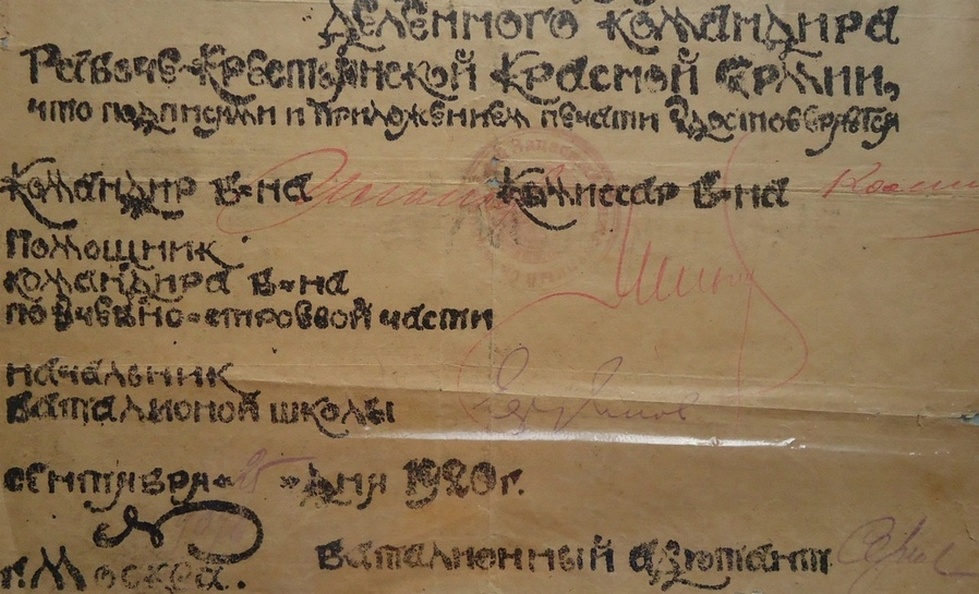 деленного командира
Рабоче-Крестьянской Красной Армии,
что подписями и приложением печати удостоверяется
Командир б-на Комиссар б-на
Помощник
командира б-на
по учебно-строевой части
начальник
баталионой школы
сентября "25" дня 1920 г.
№
г. Москва.
Баталионный адъютант